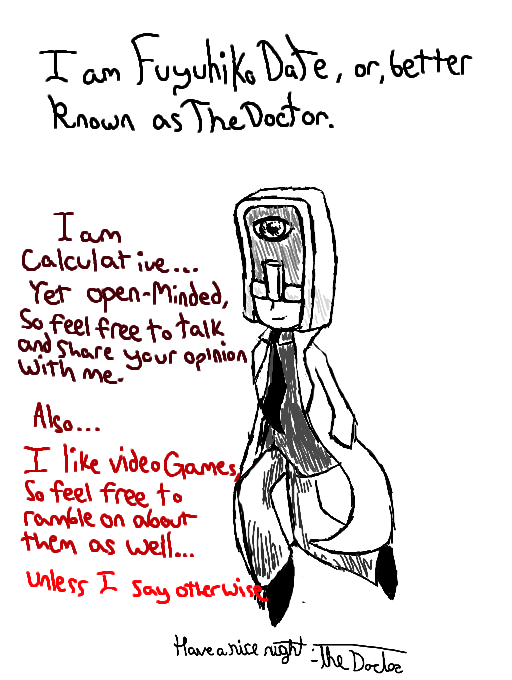 I am Fuyuhiko Date, or, better
known as The Doctor.
I am
Calculative...
Yet open-Minded,
So feel free to talk
and share your opinion
with me.
Also...
I like video Games,
So feel free to
ramble on about
them as well...
unless I say otherwise.
Have a nice night :
-The Doctor